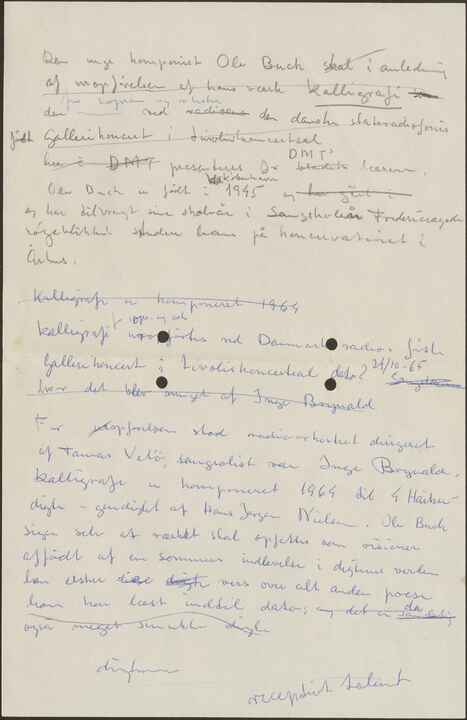 Den unge komponist Ole Buch skal i anledning
af uropførelsen af hans værk Kalligrafi
for sopran og orkester
den ved radioens den danske statsradiofonis
første Gallerikoncert i tivolikoncertsal
her i DMT præsenteres for DMT's læsere.
Ole Buch er født i København 1945 og har gået i
og har tilbragt sine skoleår i Sangskolen Fredericiagade
studerer hans på koncervatoriet i
Århus.
Kalligrafi er komponeret 1964
Kalligrafi ved Danmarks radios første
Gallerikoncert i Tivolis koncertsal dato? 21/10-65
hvor det blev sunget af Inge Borgwald
For opførelsen stod radioorkestret dirigeret
af Tamas Vetö, sangsolist var Inge Borgwald.
Kalligrafi er komponeret 1964 til 4 Haiku-
digte - gendigtet af Hans Jørgen Nielsen. Ole Buch
siger selv at værket skal opfattes som visioner
affødt af en sommers indlevelse i digtenes verden
han elsker disse digte vers over alt anden poesi
han har læst indtil dato; og det er da
også meget smukke digte
digtene
receptivt talent